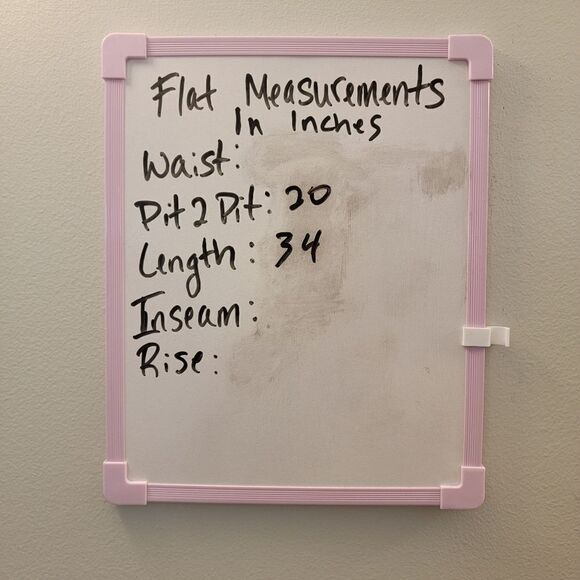 Flat Measurements
In Inches
Waist:
Pit2Pit: 20
Length: 34
Inseam:
Rise: